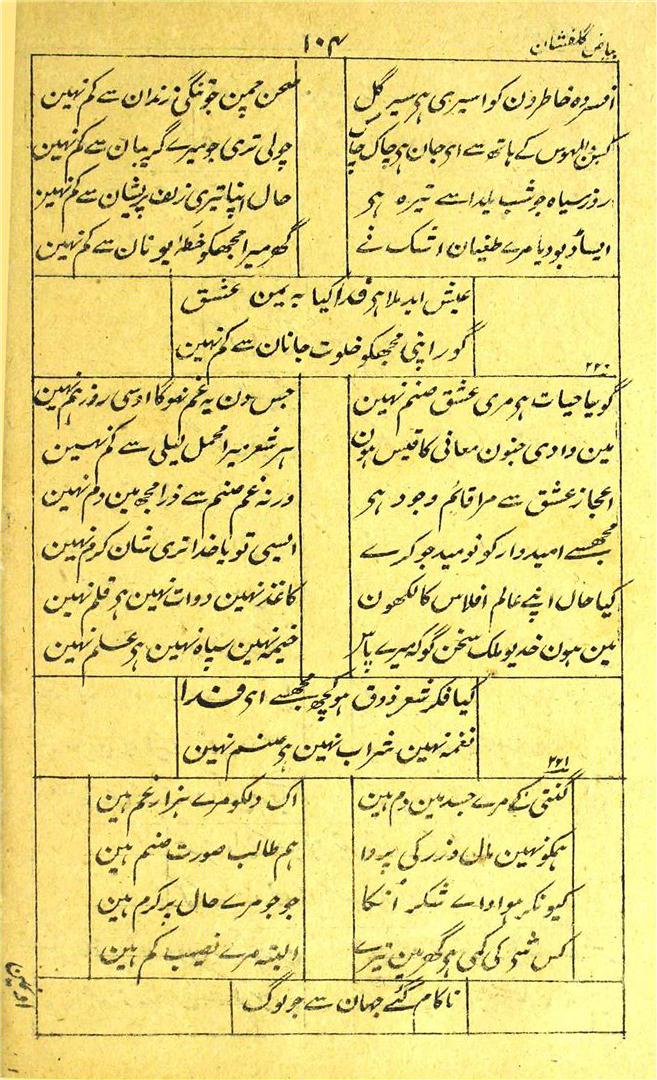 بیاض گلفشان
۱۰۴
افسردہ خاطرون کو اسیری ہی سیر گل
صحن چمن جو تنگی زندان سے کم نہین
کس بوالہوس کے ہاتھ سے ای جان ہی چاک چاک
چولی تری جو میرے گریبان سے کم نہین
روز سیاہ جو شب یلدا سے تیرہ ہی
حال اپنا تیری زلف پریشان سے کم نہین
ایسا ڈبو دیا مرے طغیان اشک نے
گھر میرا مجھکو خطۂ یونان سے کم نہین
عیش ابد ملا ہی فدا کیا بہ یمن عشق
گور اپنی مجھکو خلوت جانان سے کم نہین
۲۲۰
گویا حیات ہی مری عشق صنم نہین
جس دن یہ غم نہوگا اوسی روز ہم نہین
مین وادی جنون معانی کا قیس ہون
ہر شعر میرا محمل لیلی سے کم نہین
اعجاز عشق سے مرا قائم وجود ہی
ورنہ غم صنم سے ذرا مجھ مین دم نہین
مجھسے امیدوار کو نومید جو کرے
ایسی تو یا خدا تری شان کرم نہین
کیا حال اپنے عالم افلاس کا لکھون
کاغذ نہین دوات نہین ہی قلم نہین
مین ہون خدیو ملک سخن گو کہ میرے پاس
خیمہ نہین سپاہ نہین ہی علم نہین
کیا فکر شعر ذوق ہو کچھ مجھسے ای فدا
نغمہ نہین شراب نہین ہی صنم نہین
۲۲۱
گنتی کے مرے جسد مین دم ہین
اک دلکو مرے ہزار غم ہین
ہمکو نہین مال و زر کی پروا
ہم طالب صورت صنم ہین
کیونکر ہو ادا اے شکر انکا
جو جو مرے حال پر کرم ہین
کس شی کی کمی ہی گھر مین تیرے
البتہ مرے نصیب کم ہین
ناکام گئے جہان سے جو لوگ